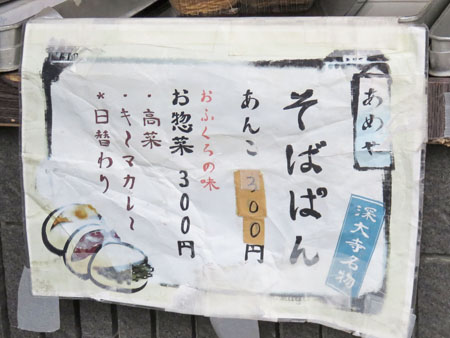 あめや
深大寺名物
そばぱん
あんこ 300円
おふくろの味
お惣菜 300円
・高菜
・キーマカレー
＊日替わり